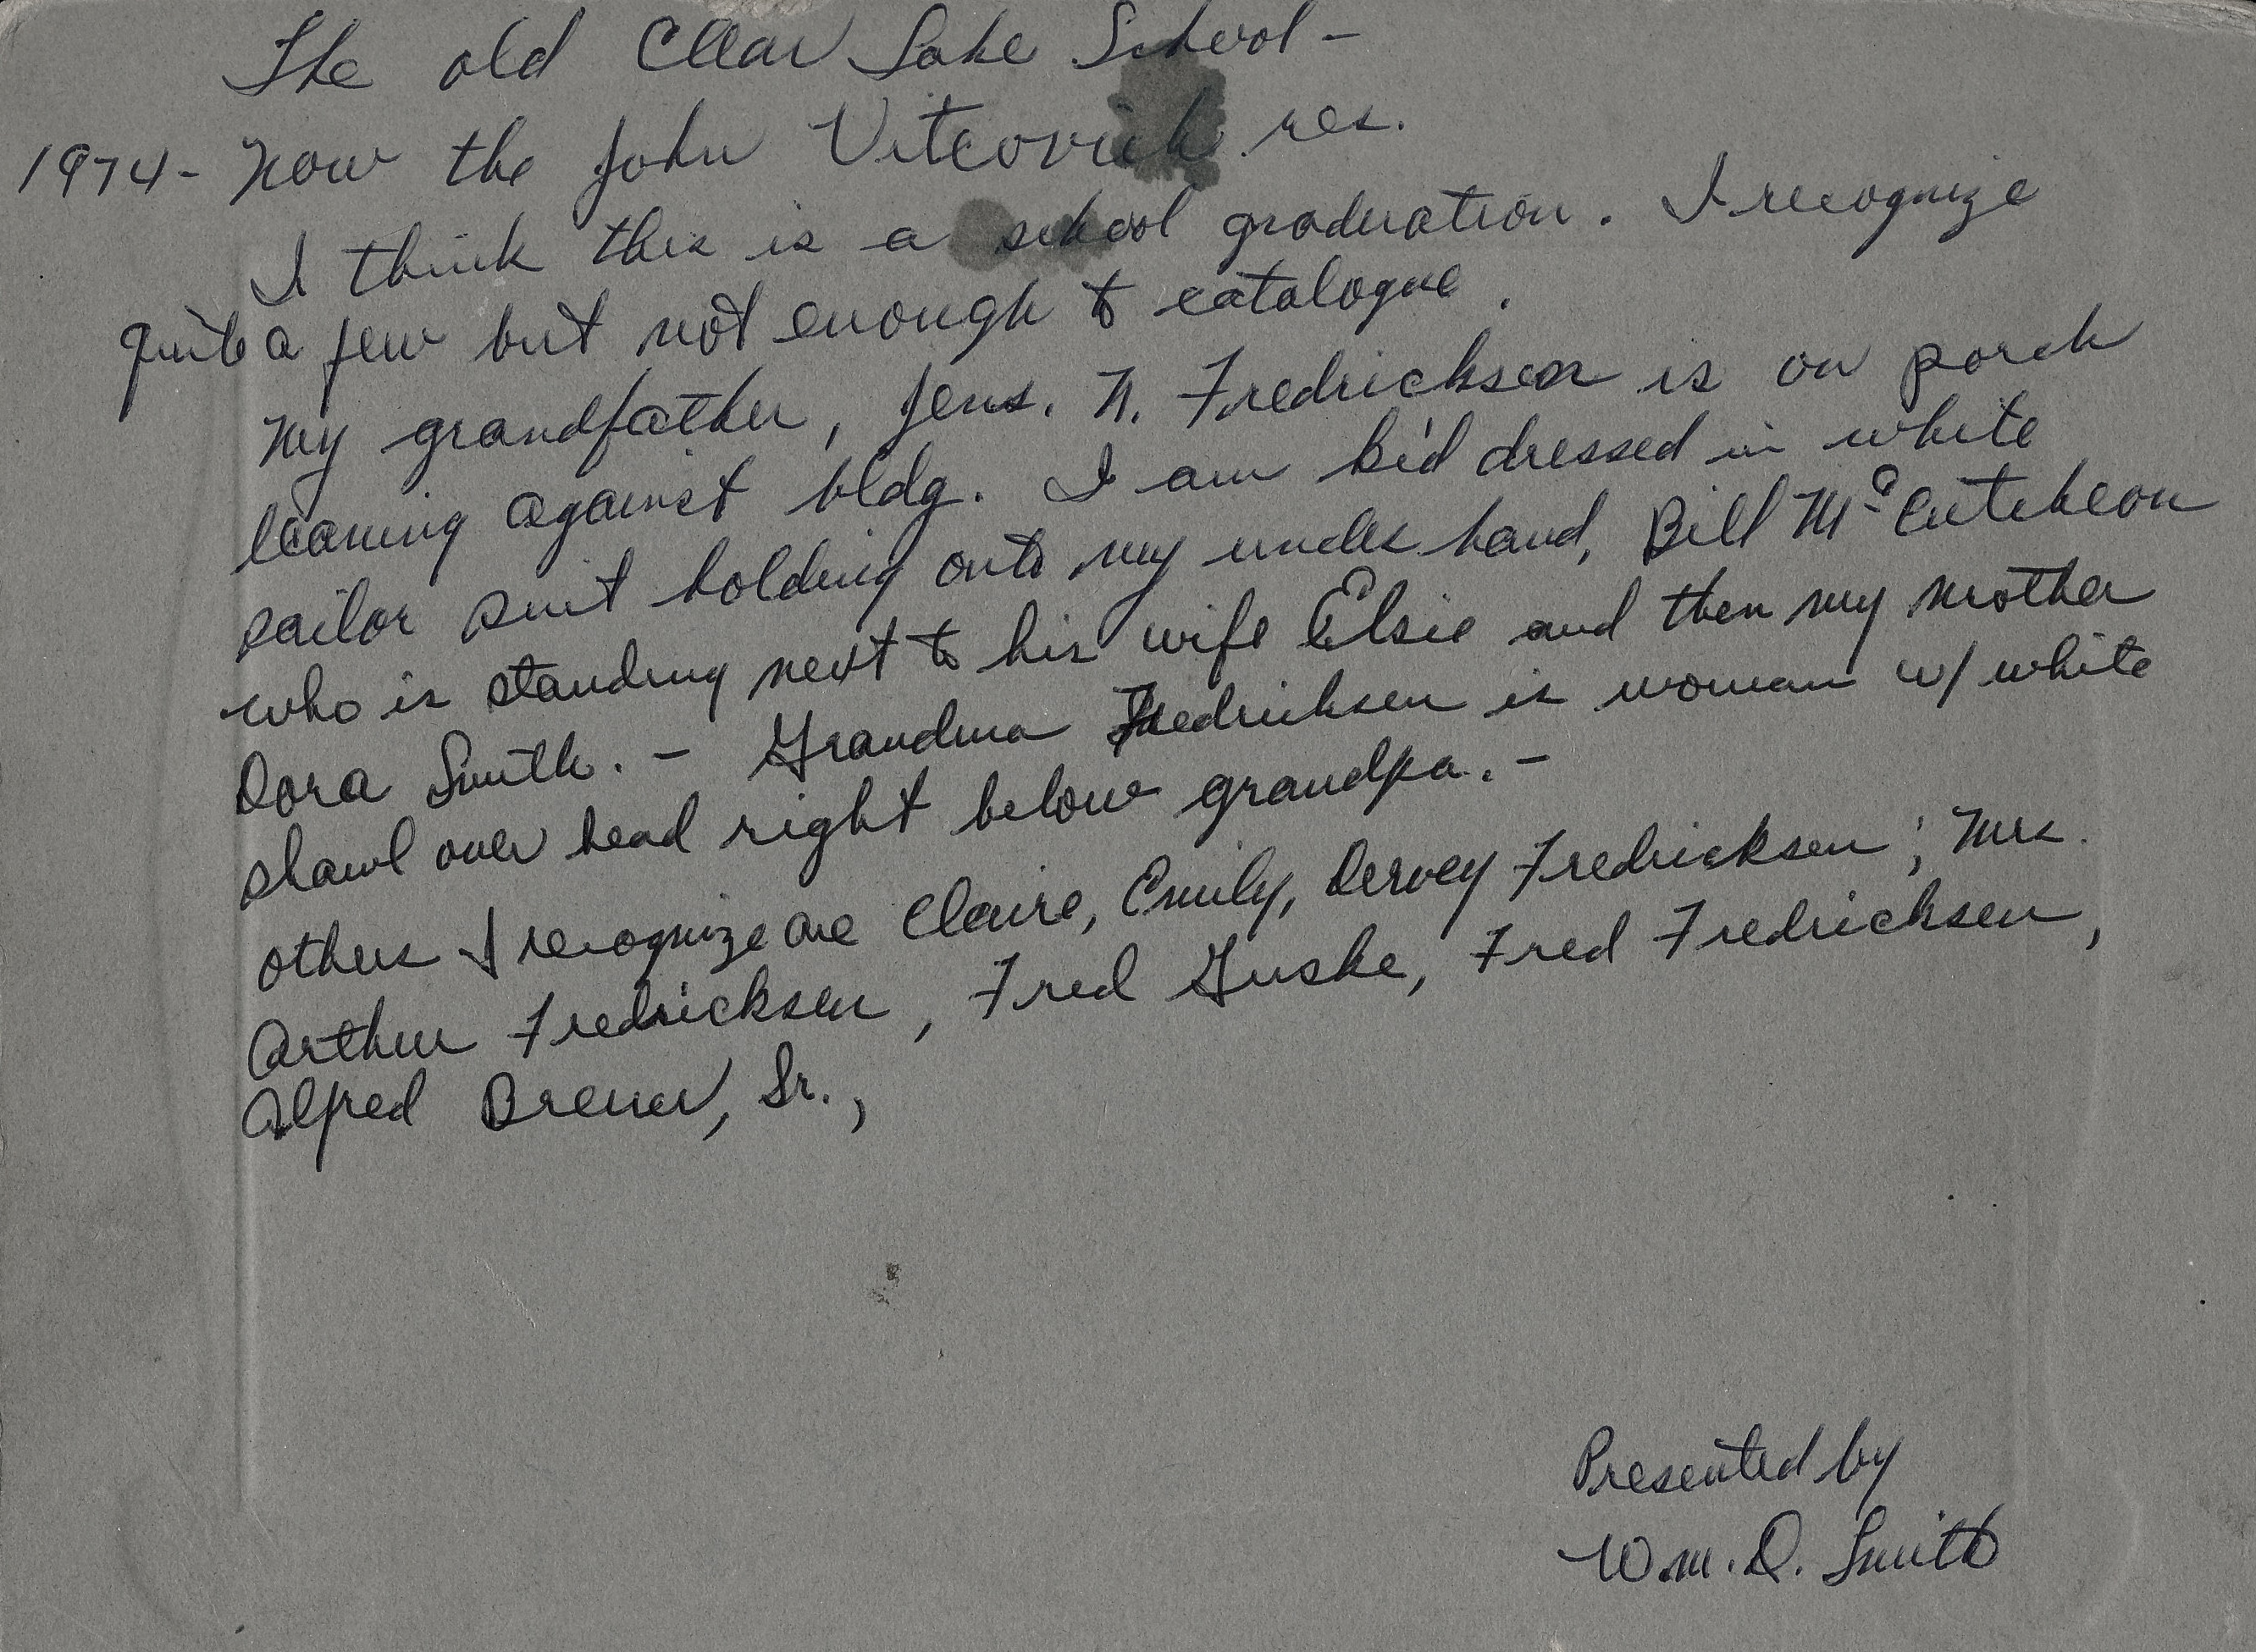 The old Clear Lake School -
1974 - Now the John Vitcovich res.
I think this is a school graduation. I recognize
quite a few but not enough to catalogue.
My grandfather, Jens. N. Fredricksen is on porch
leaning against bldg. I am kid dressed in white
sailor suit holding onto my uncles hand, Bill McCutcheon
who is standing next to his wife Elsie and then my mother
Dora Smith. - Grandma Fredricksen is woman w/ white
shawl over head right below grandpa. -
others I recognize are Claire, Emily, Dervey Fredricksen; Mrs.
Arthur Fredricksen, Fred Guske, Fred Fredricksen,
Alfred Brewer, Sr.,
Presented by
Wm. D. Smith